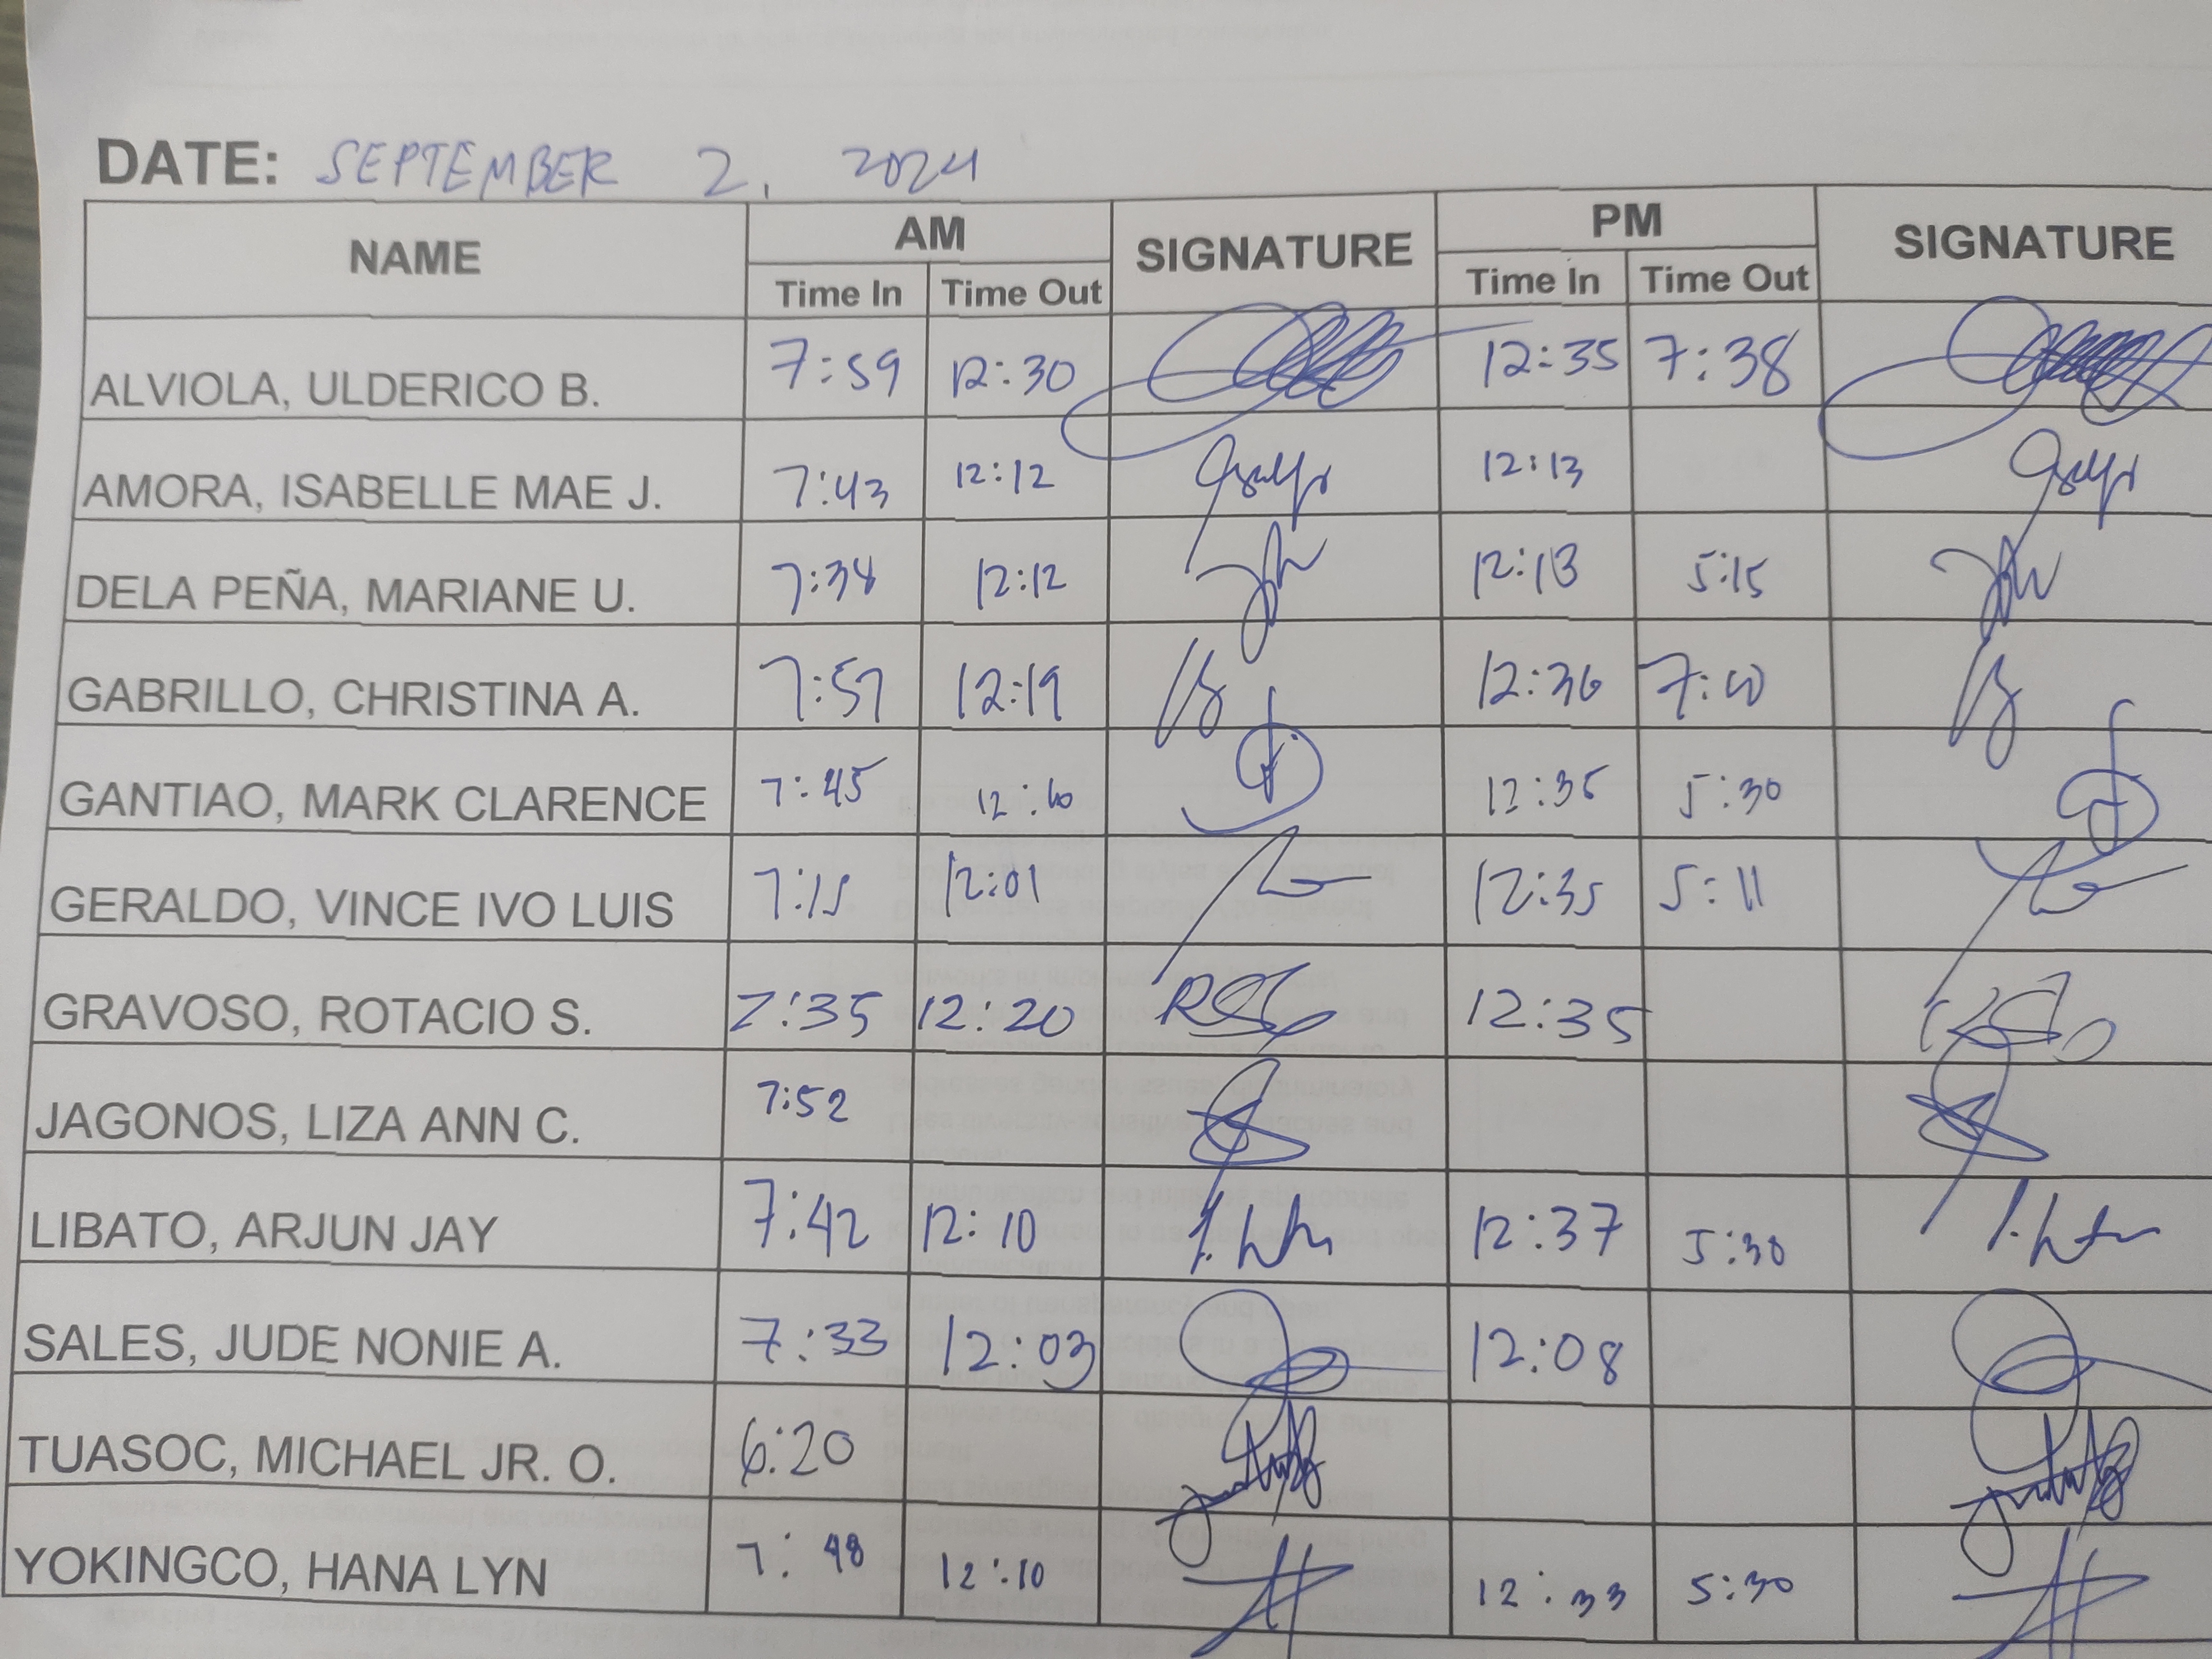 DATE: SEPTEMBER 2, 2024
NAME AM SIGNATURE PM SIGNATURE
Time In Time Out Time In Time Out
ALVIOLA, ULDERICO B. 7:59 12:30 12:35 7:38
AMORA, ISABELLE MAE J. 7:43 12:12 12:13
DELA PEÑA, MARIANE U. 7:34 12:12 12:13 5:15
GABRILLO, CHRISTINA A. 7:57 12:19 12:36
GANTIAO, MARK CLARENCE 7:45 12:35 5:30
GERALDO, VINCE IVO LUIS 7:15 12:01 12:35 5:11
GRAVOSO, ROTACIO S. 7:35 12:20 12:35
JAGONOS, LIZA ANN C. 7:52
LIBATO, ARJUN JAY 7:42 12:10 12:37 5:30
SALES, JUDE NONIE A. 7:33 12:03 12:08
TUASOC, MICHAEL JR. O. 6:20
YOKINGCO, HANA LYN 7:48 12:10 12:33 5:30